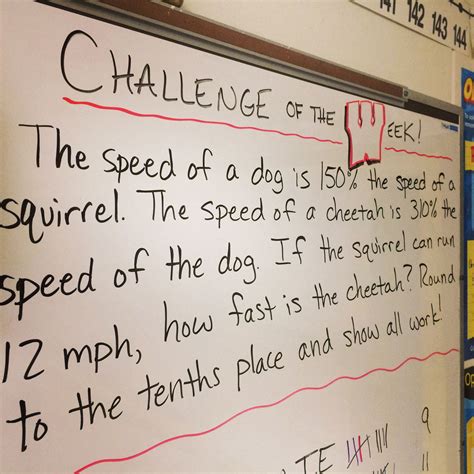 141 142 143 144
CHALLENGE OF THE WEEK!
The speed of a dog is 150% the speed of a
squirrel. The speed of a cheetah is 310% the
speed of the dog. If the squirrel can run
12 mph, how fast is the cheetah? Round
to the tenths place and show all work!
9